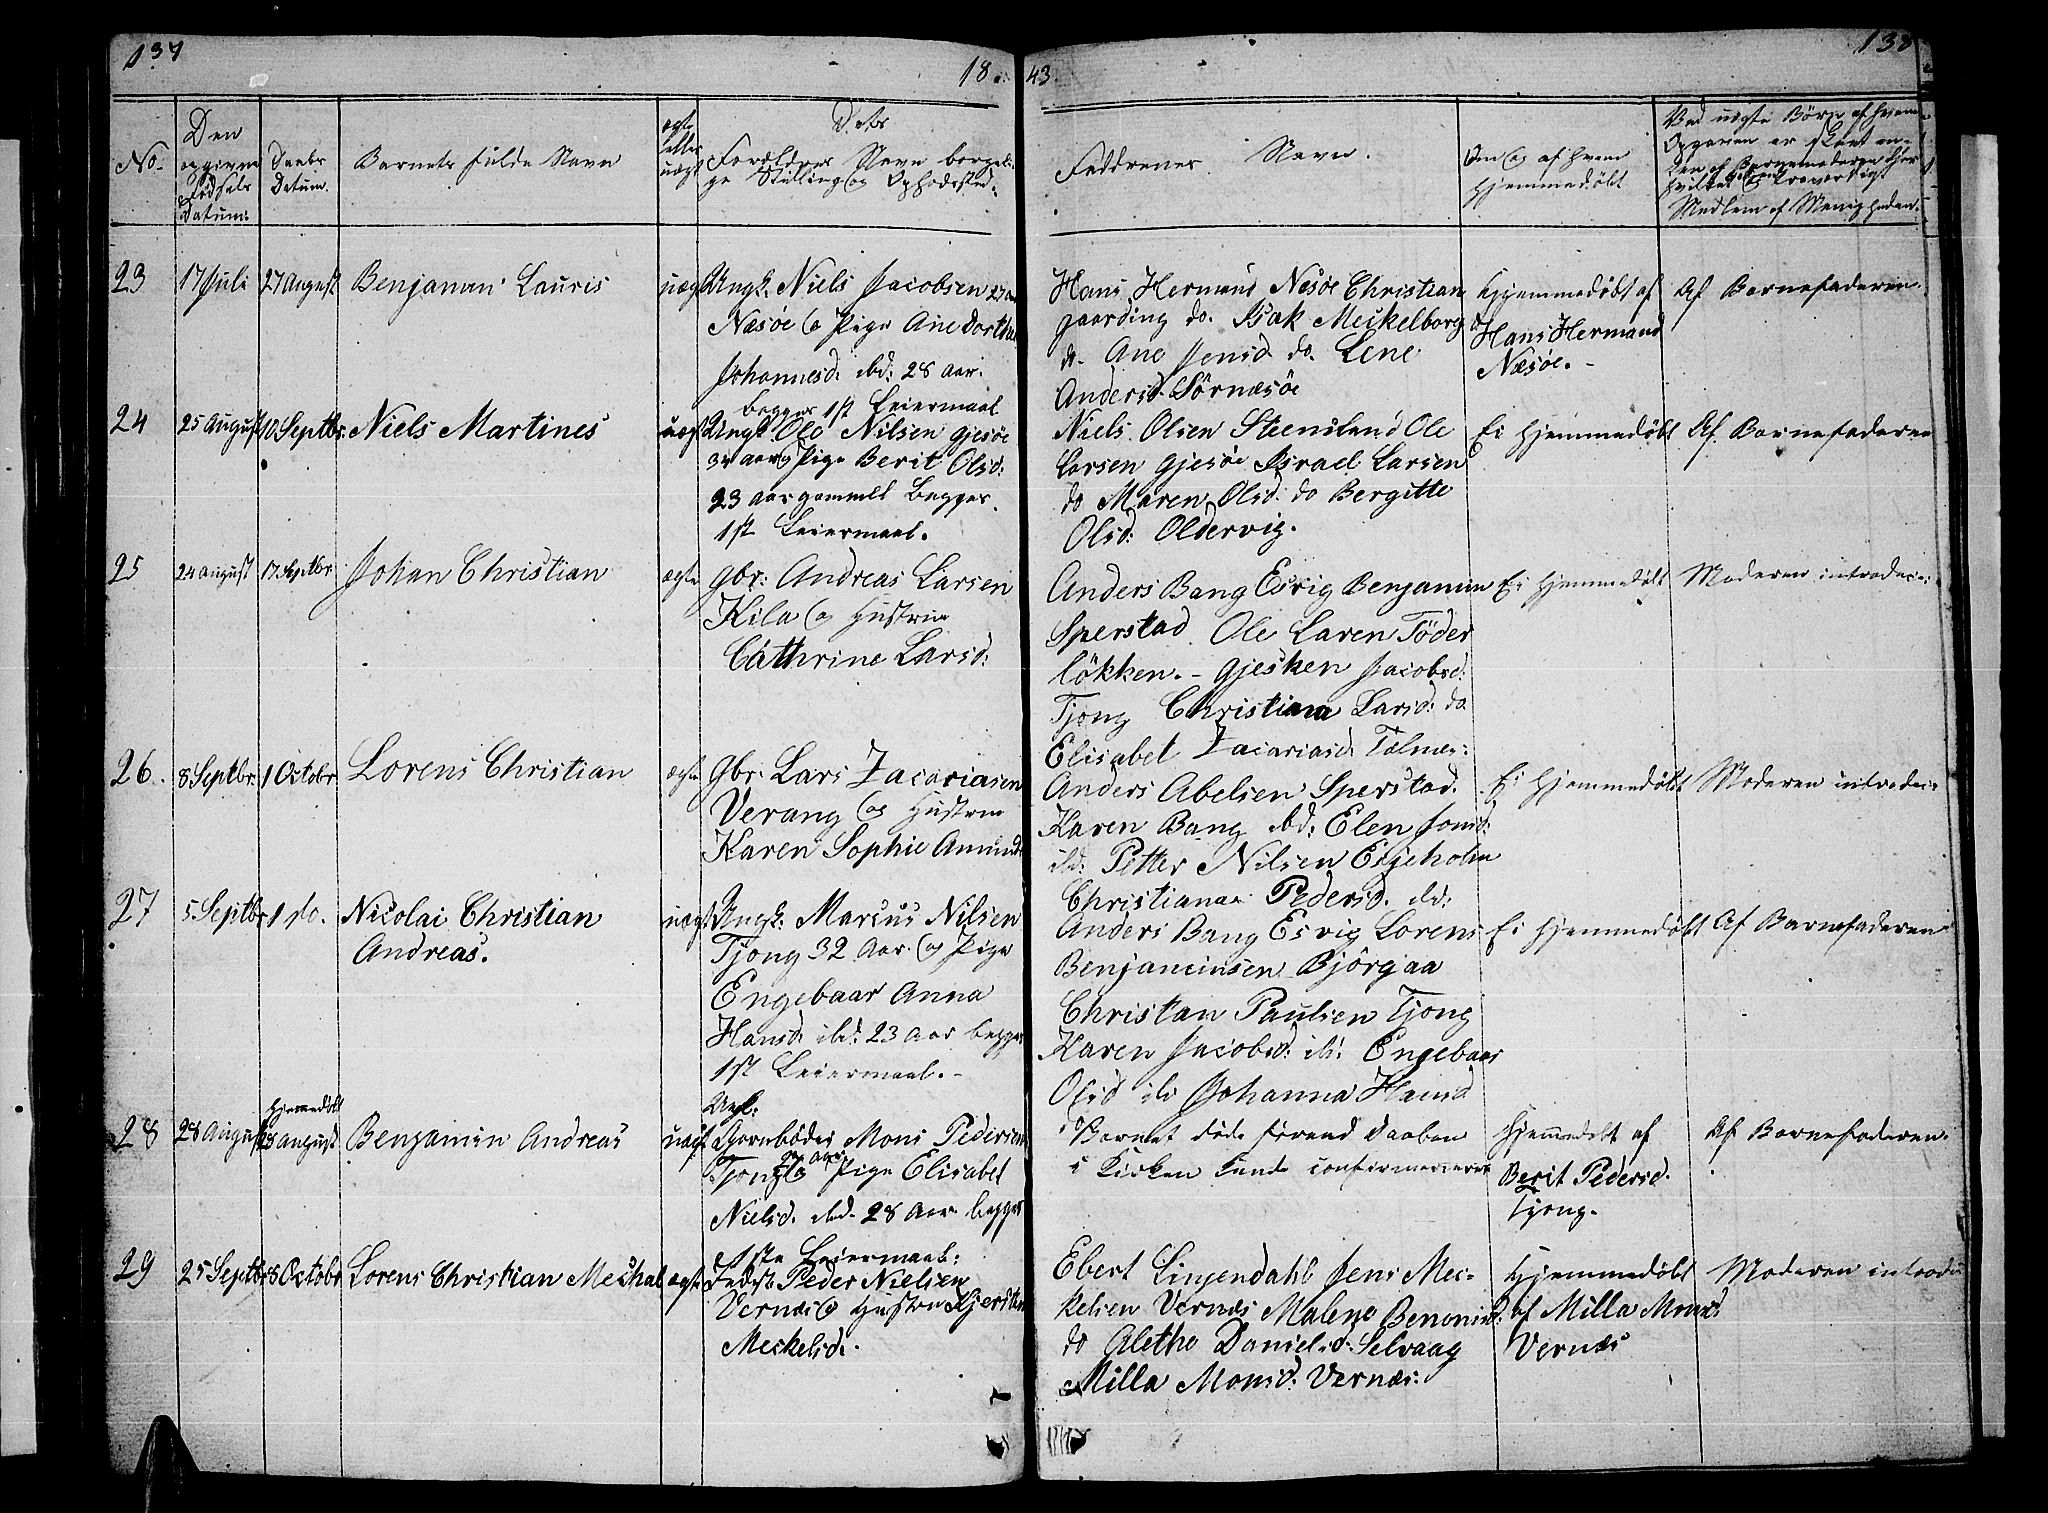 137
18
43.
138
No.
Den
opgivne
Fødsels
Datum.
Daabs
Datum.
Barnets fulde Navn
ægte
eller
uægte
Dets
Forældres Navn borgeli-
ge Stilling og Opholdssted.
Faddrenes Navn.
Om og af hvem
hjemmedøbt
Ved uægte Børn af hvem
Opgaven er skeet en-
ten af Barnemoderen eller
Medlem af Menigheden.
23
17 Juli
27 August
Benjamin Lauris
uægt
Ungk. Niels Jacobsen
Næsøe og Pige Ane Dorthea
Johannesd. ibd: 28 aar.
begges 1st Leiermaal
Hans Hermand Næsøe Christian
gaarding do. Isak Meckelborg
do. Ane Jensd. do. Lene
Andersd. Sørnæsöe
Hjemmedøbt af
Hans Hermand
Næsöe.-
Af Barnefaderen.
24
25 August
10 Septbr.
Niels Martines
uægt
Ungk Ole Nilsen Gjesöe
34 aar og Pige Berit Olsd:
23 aar gammelt Begges
1st Leiermaal.
Niels Olsen Steensland Ole
Larsen Gjesöe Israel Larsen
do Maren Olsd: do Bergitte
Olsd: Oldervig.
Ei Hjemmedøbt
Af Barnefaderen
25
24 August
17 Septbr
Johan Christian
ægte
Gbr: Andreas Larsen
Kila og Hustrue
Cathrine Larsd:
Anders Bang Esvig Benjamin
Sperstad Ole Laren Töder
lökken.- Gjesken Jacobsd:
Tjong Christiana Larsd: do.
Elisabet Zacariasd. Tælnæs:
Ei Hjemmedøbt
Moderen introduc:
26.
8 Septbr
1 Octobr
Lorens Christian
ægte
Gbr: Lars Zacariasen
Verang og Hustrue
Karen Sophie Amunds
Anders Abelsen Sperstad.
Karen Bang ibd: Elen Jonsd:
ibd: Petter Nilsen Esjeholm
Christianae Pedersd. ibd:
Ei Hjemmedøbt
Moderen introduc:
27
5 Septbr
1 do.
Nicolai Christian
Andreas.
uægt
Ungk: Marcus Nilsen
Tjong 32 Aar og Pige
Engebaar Anna
Hansd. ibd: 23 Aar begges
1st Leiermaal.-
Anders Bang Esvig Lorens
Benjaminsen Björgaa
Christan Paulsen Tjong
Karen Jacobsd: ib: Engebaar
Olsd ib Johanna Hansd
Ei Hjemmedøbt
Af Barnefaderen
28
28 August
hjemmedøbt
28 august
Benjamin Andreas
uægt
Ugk:
Mons Pedersen
Tjong og Pige Elisabet
Nielsd. ibd. 28 Aar begges
1ste Leiermaal:
Barnet døde førend Daaben
i Kirken kunde confirmeres
Hjemmedøbt af
Berit Pedersd.
Tjong.
Af Barnefaderen.
29
25 Septbr
8 Octobr
Lorens Christian Mechal
ægte
Peder Nielsen
Vernæs og Hustru Kjersten
Meckelsd.
Ebert Lingendahl Jens Mec-
kelsen Vernæs Malene Benonisd:
do Aletha Danielsd: Selvaag
Milla Monsd: Vernæs:
Hjemmedøbt
af Milla Monsd
Vernæs
Moderen introdu